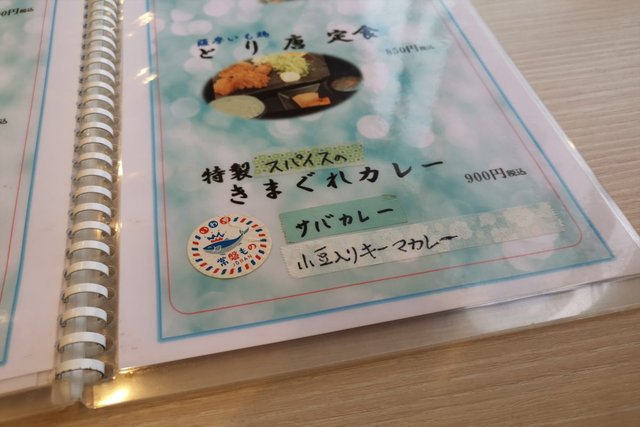 薩摩いも鶏
とり唐 定食
850円税込
特製 スパイスの
きまぐれカレー
900円税込
サバカレー
小豆入りキーマカレー
いわき
常磐もの
JAPAN